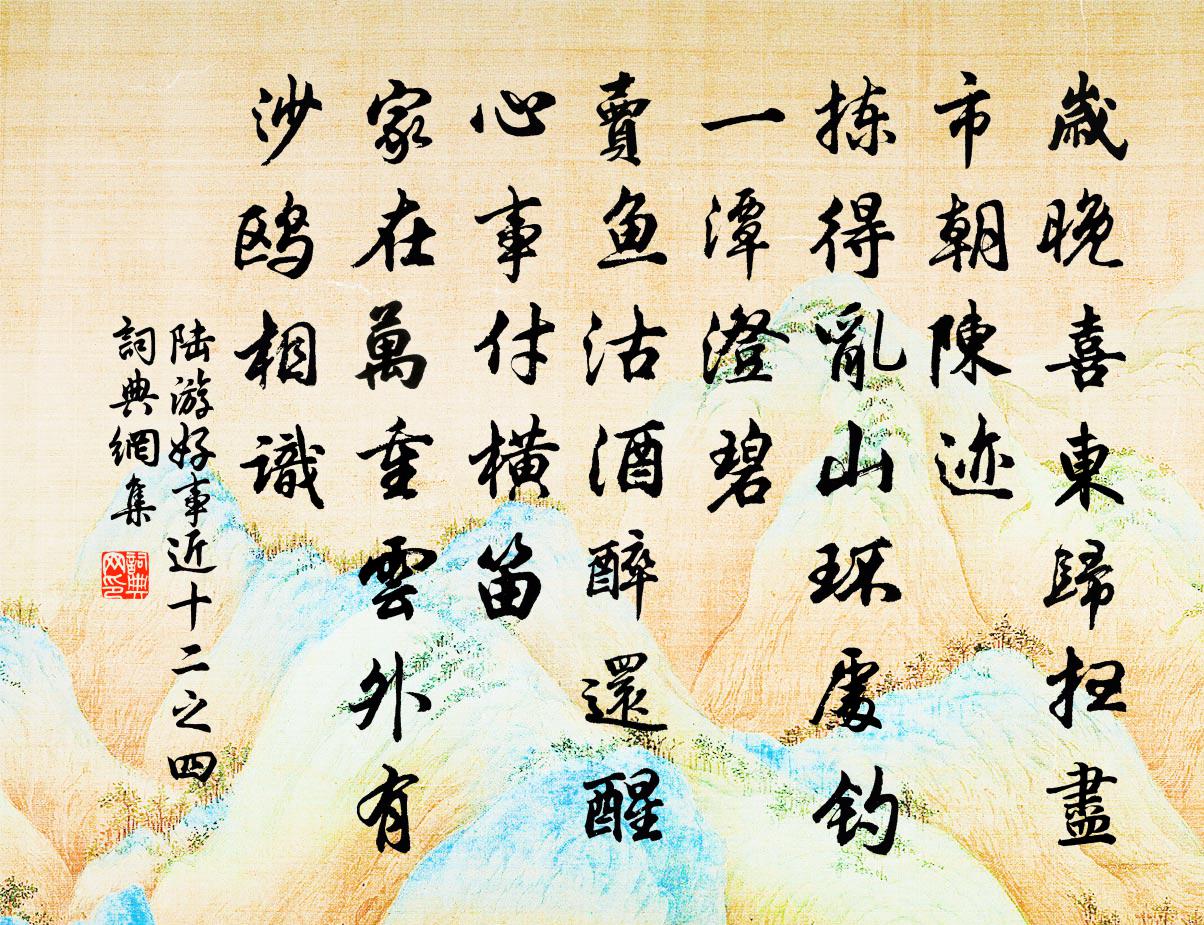 歲晚喜東歸掃盡
市朝陳迹
揀得亂山环處釣
一潭澄碧
賣魚沽酒醉還醒
心事付横笛
家在萬重雲外有
沙鸥相識
陆游好事近十二之四
詞典網集
詞典网印